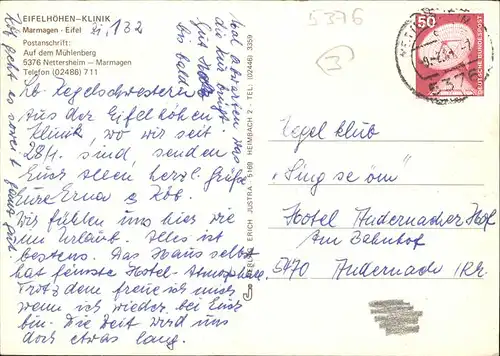 EIFELHÖHEN-KLINIK
Marmagen · Eifel Zi, 132
Postanschrift:
Auf dem Mühlenberg
5376 Nettersheim — Marmagen
Telefon (02486) 711
Lb. Kegelschwestern
Aus der Eifelhöhen
Klinik, wo wir seit
28/1. sind, senden
Euch allen herzl. Grüße
Eure Erna &
Wir fühlen uns hier wie
im Urlaub. Alles ist
bestens. Das Haus selbst
hat feinste Hotel-Atmosphäre.
Trotzdem freue ich mich
wenn ich wieder bei Euch
bin. Die Zeit wird uns
doch etwas lang.
Mal abwarten was
die Kur bringt.
Gut Holz
Bis bald
geht es soweit ganz gut.
VERLAG ERICH JUSTRA · 5169 HEIMBACH 2 · TEL.: (02446) 3359
5376
3
50
DEUTSCHE BUNDESPOST
5376
Kegelklub
"Sing se öm"
Hotel Andernacher Hof
Am Bahnhof
5470 Andernach/Rh.